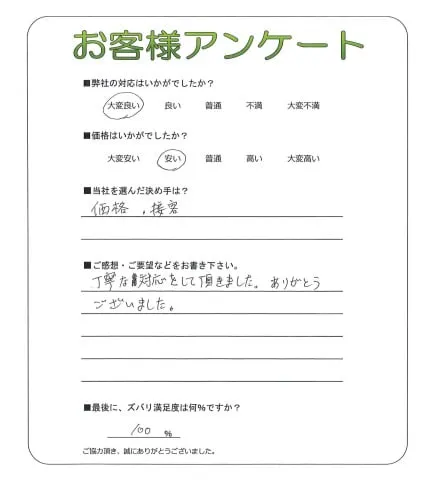 お客様アンケート
■弊社の対応はいかがでしたか？
大変良い 良い 普通 不満 大変不満
■価格はいかがでしたか？
大変安い 安い 普通 高い 大変高い
■当社を選んだ決め手は？
価格、接客
■ご感想・ご要望などをお書き下さい。
丁寧な対応をして頂きました。ありがとう
ございました。
■最後に、ズバリ満足度は何%ですか？
100 %
ご協力頂き、誠にありがとうございました。